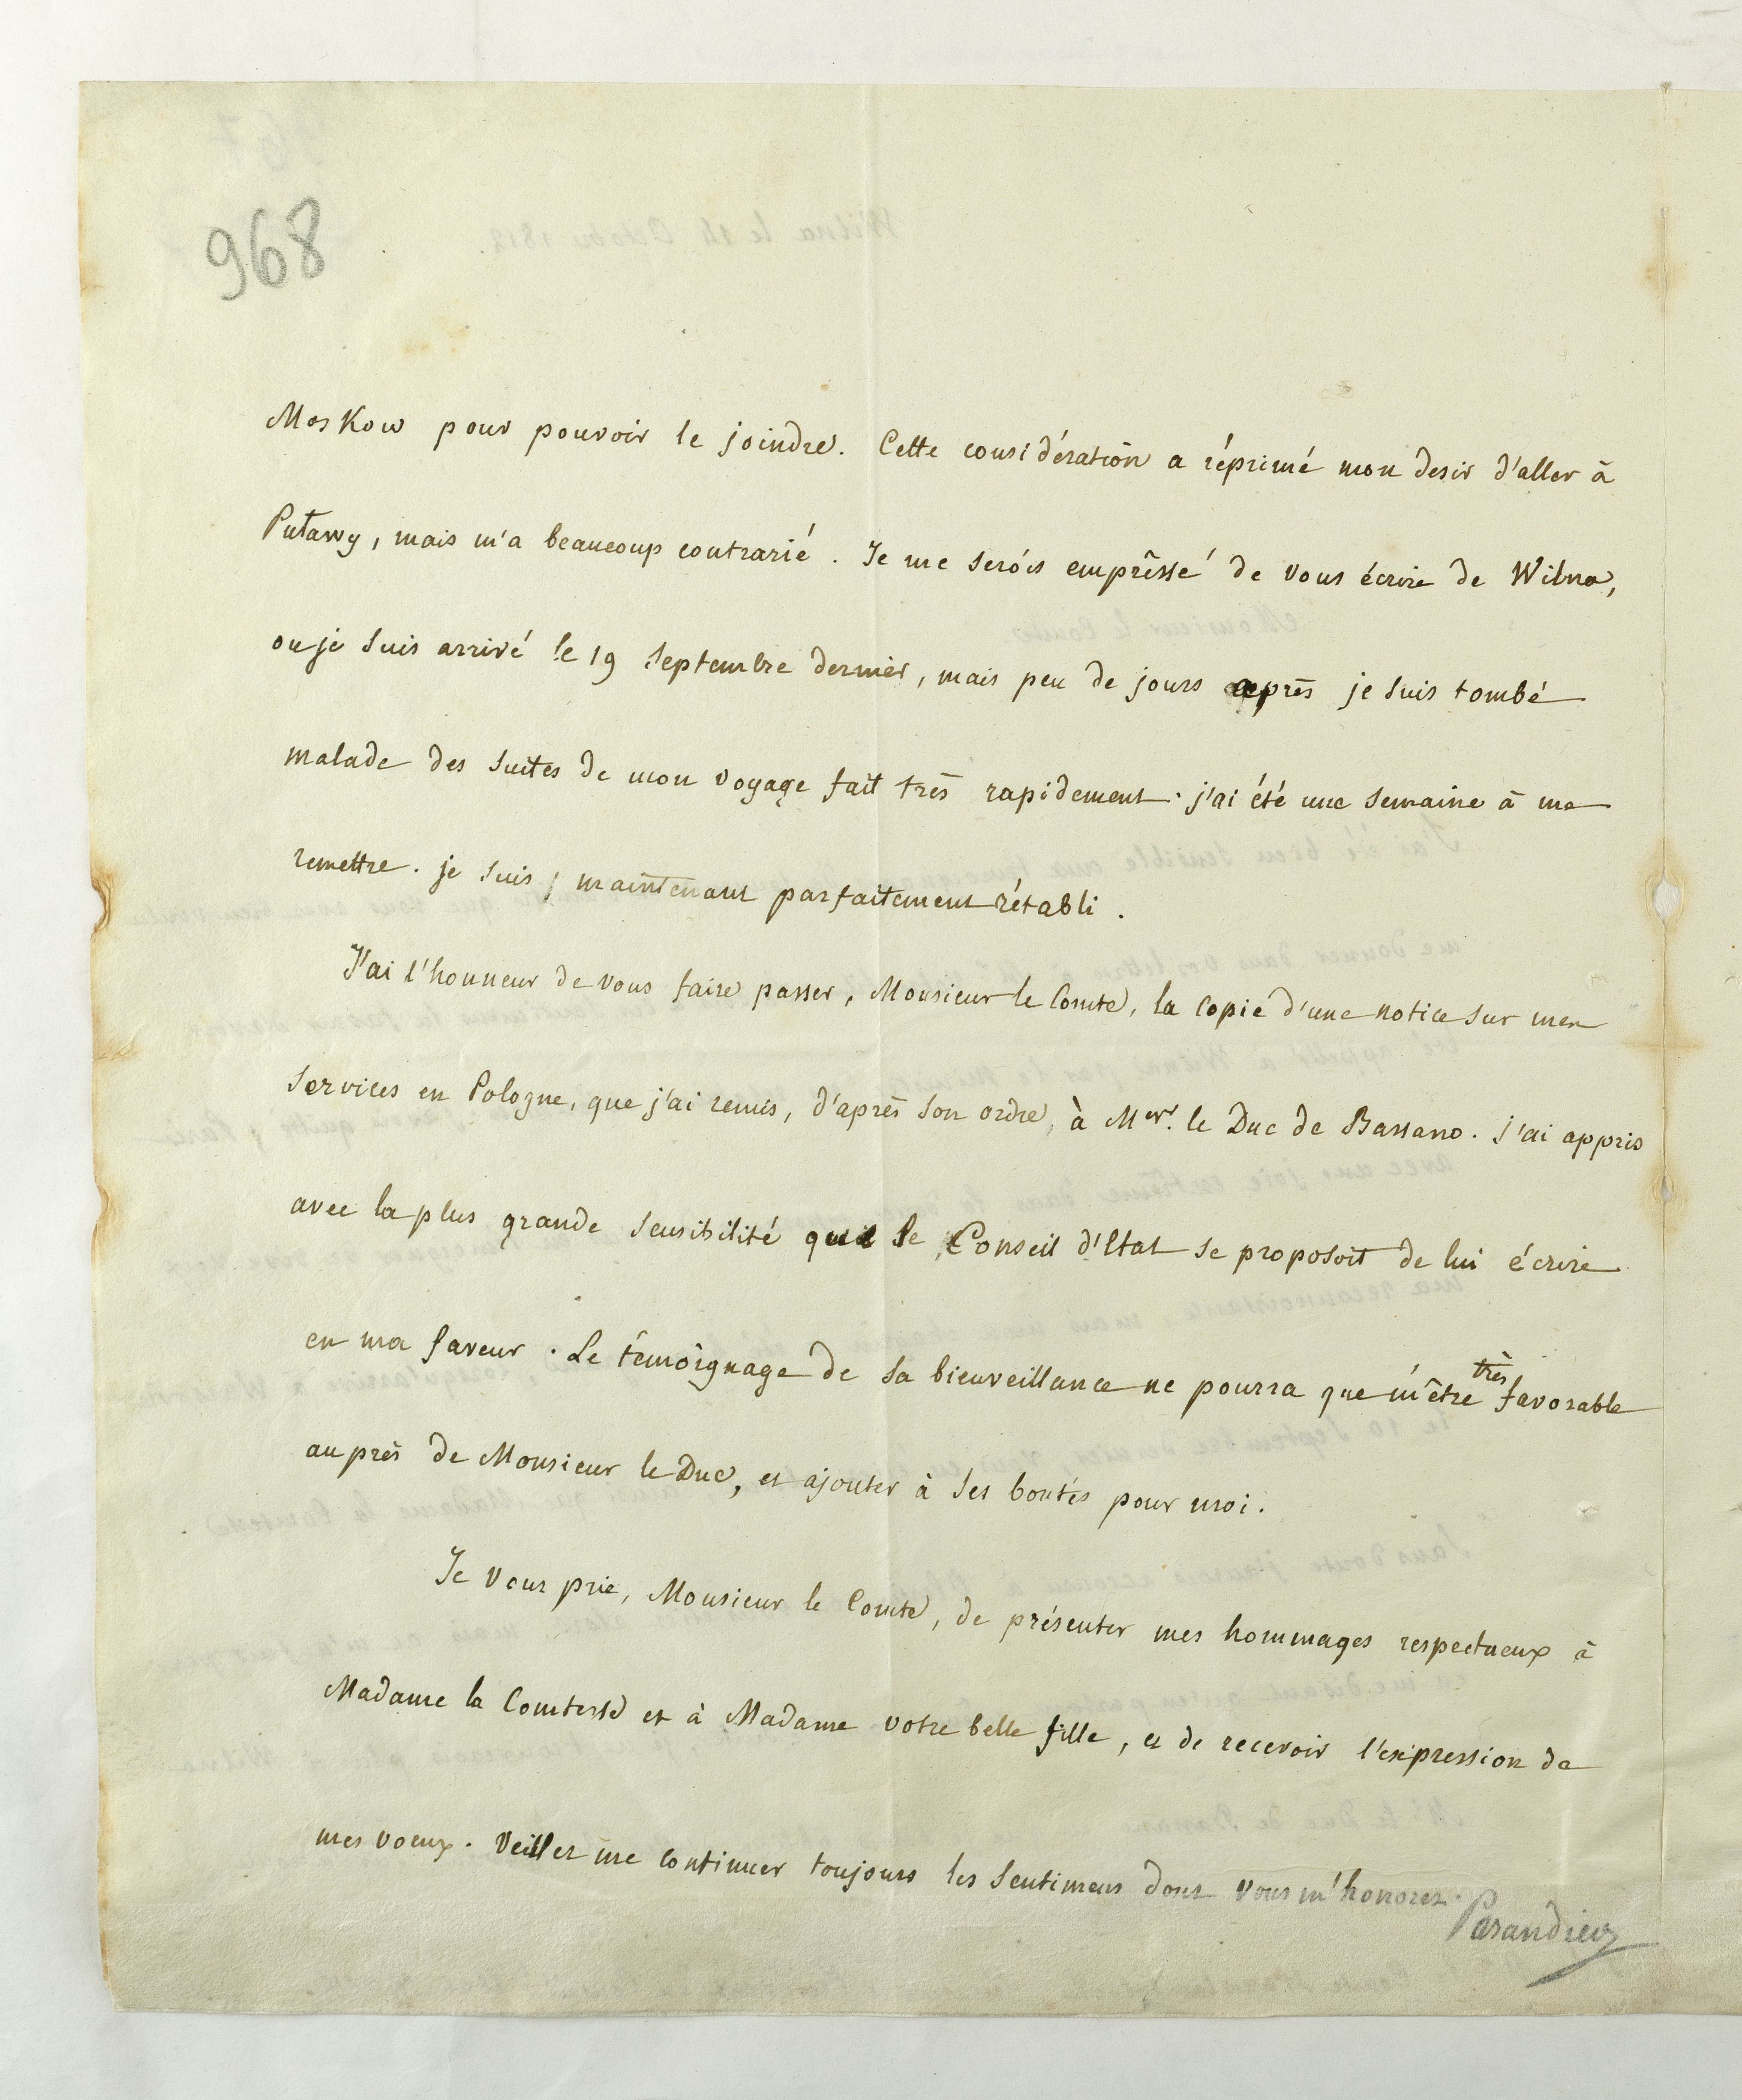 968
Moskow pour pouvoir le joindre. Cette considération a réprimé mon desir d'aller à
Puławy, mais m'a beaucoup contrarié. Je me serois empressé de vous écrire de Wilna,
ou je suis arrivé le 19 Septembre dernier, mais peu de jours après je suis tombé
malade des suites de mon voyage fait très rapidement. j'ai été une semaine à me
remettre. je suis maintenant parfaitement rétabli.
J'ai l'honneur de vous faire passer, Monsieur le Comte, la copie d'une notice sur mes
services en Pologne, que j'ai remis, d'après son ordre, à Mer. le Duc de Bassano. J'ai appris
avec la plus grande sensibilité que le Conseil d'Etat se proposoit de lui écrire
en ma faveur. Le témoignage de sa bienveillance ne pourra que m'être très favorable
auprès de Monsieur le Duc, et ajouter à ses bontés pour moi.
Je vous prie, Monsieur le Comte, de présenter mes hommages respectueux à
Madame la Comtesse et à Madame votre belle fille, et de recevoir l'expression de
mes voeux. Veillez me continuer toujours les sentimens dont vous m'honorez.
Parandier